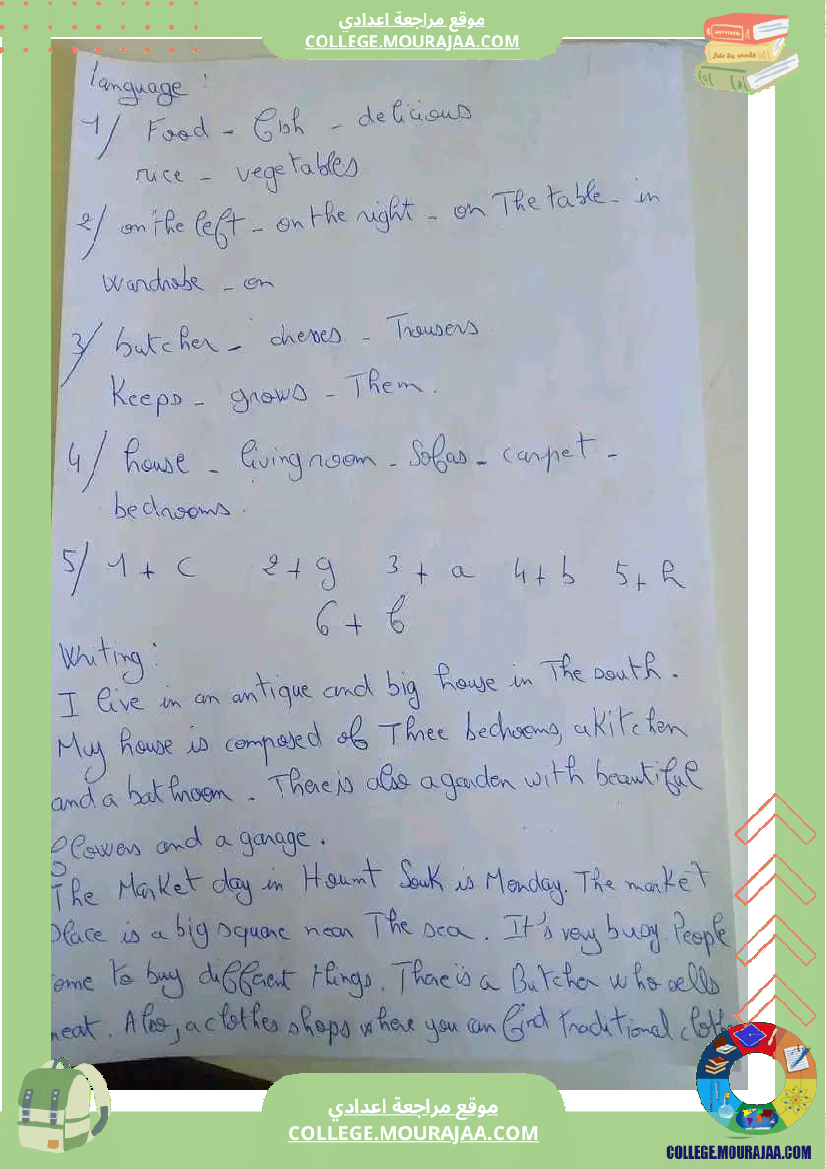 موقع مراجعة اعدادي
COLLEGE.MOURAJAA.COM
language :
1/ Food - fish - delicious
rice - vegetables
2/ on the left - on the right - on The table - in
wardrobe - on
3/ butcher - dresses - Trousers
Keeps - grows - Them.
4/ house - living room - Sofas - carpet -
bedrooms.
5/ 1 + c 2 + g 3 + a 4 + b 5 + h
6 + f
Writing :
I live in an antique and big house in The south.
My house is composed of Three bedrooms, a Kitchen
and a bathroom. There is also a garden with beautiful
flowers and a garage.
The Market day in Houmt Souk is Monday. The market
place is a big square near The sea. It's very busy. People
ome to buy different things. There is a Butcher who sells
meat. Also, a clothes shops where you can find traditional cloth
موقع مراجعة اعدادي
COLLEGE.MOURAJAA.COM
COLLEGE.MOURAJAA.COM